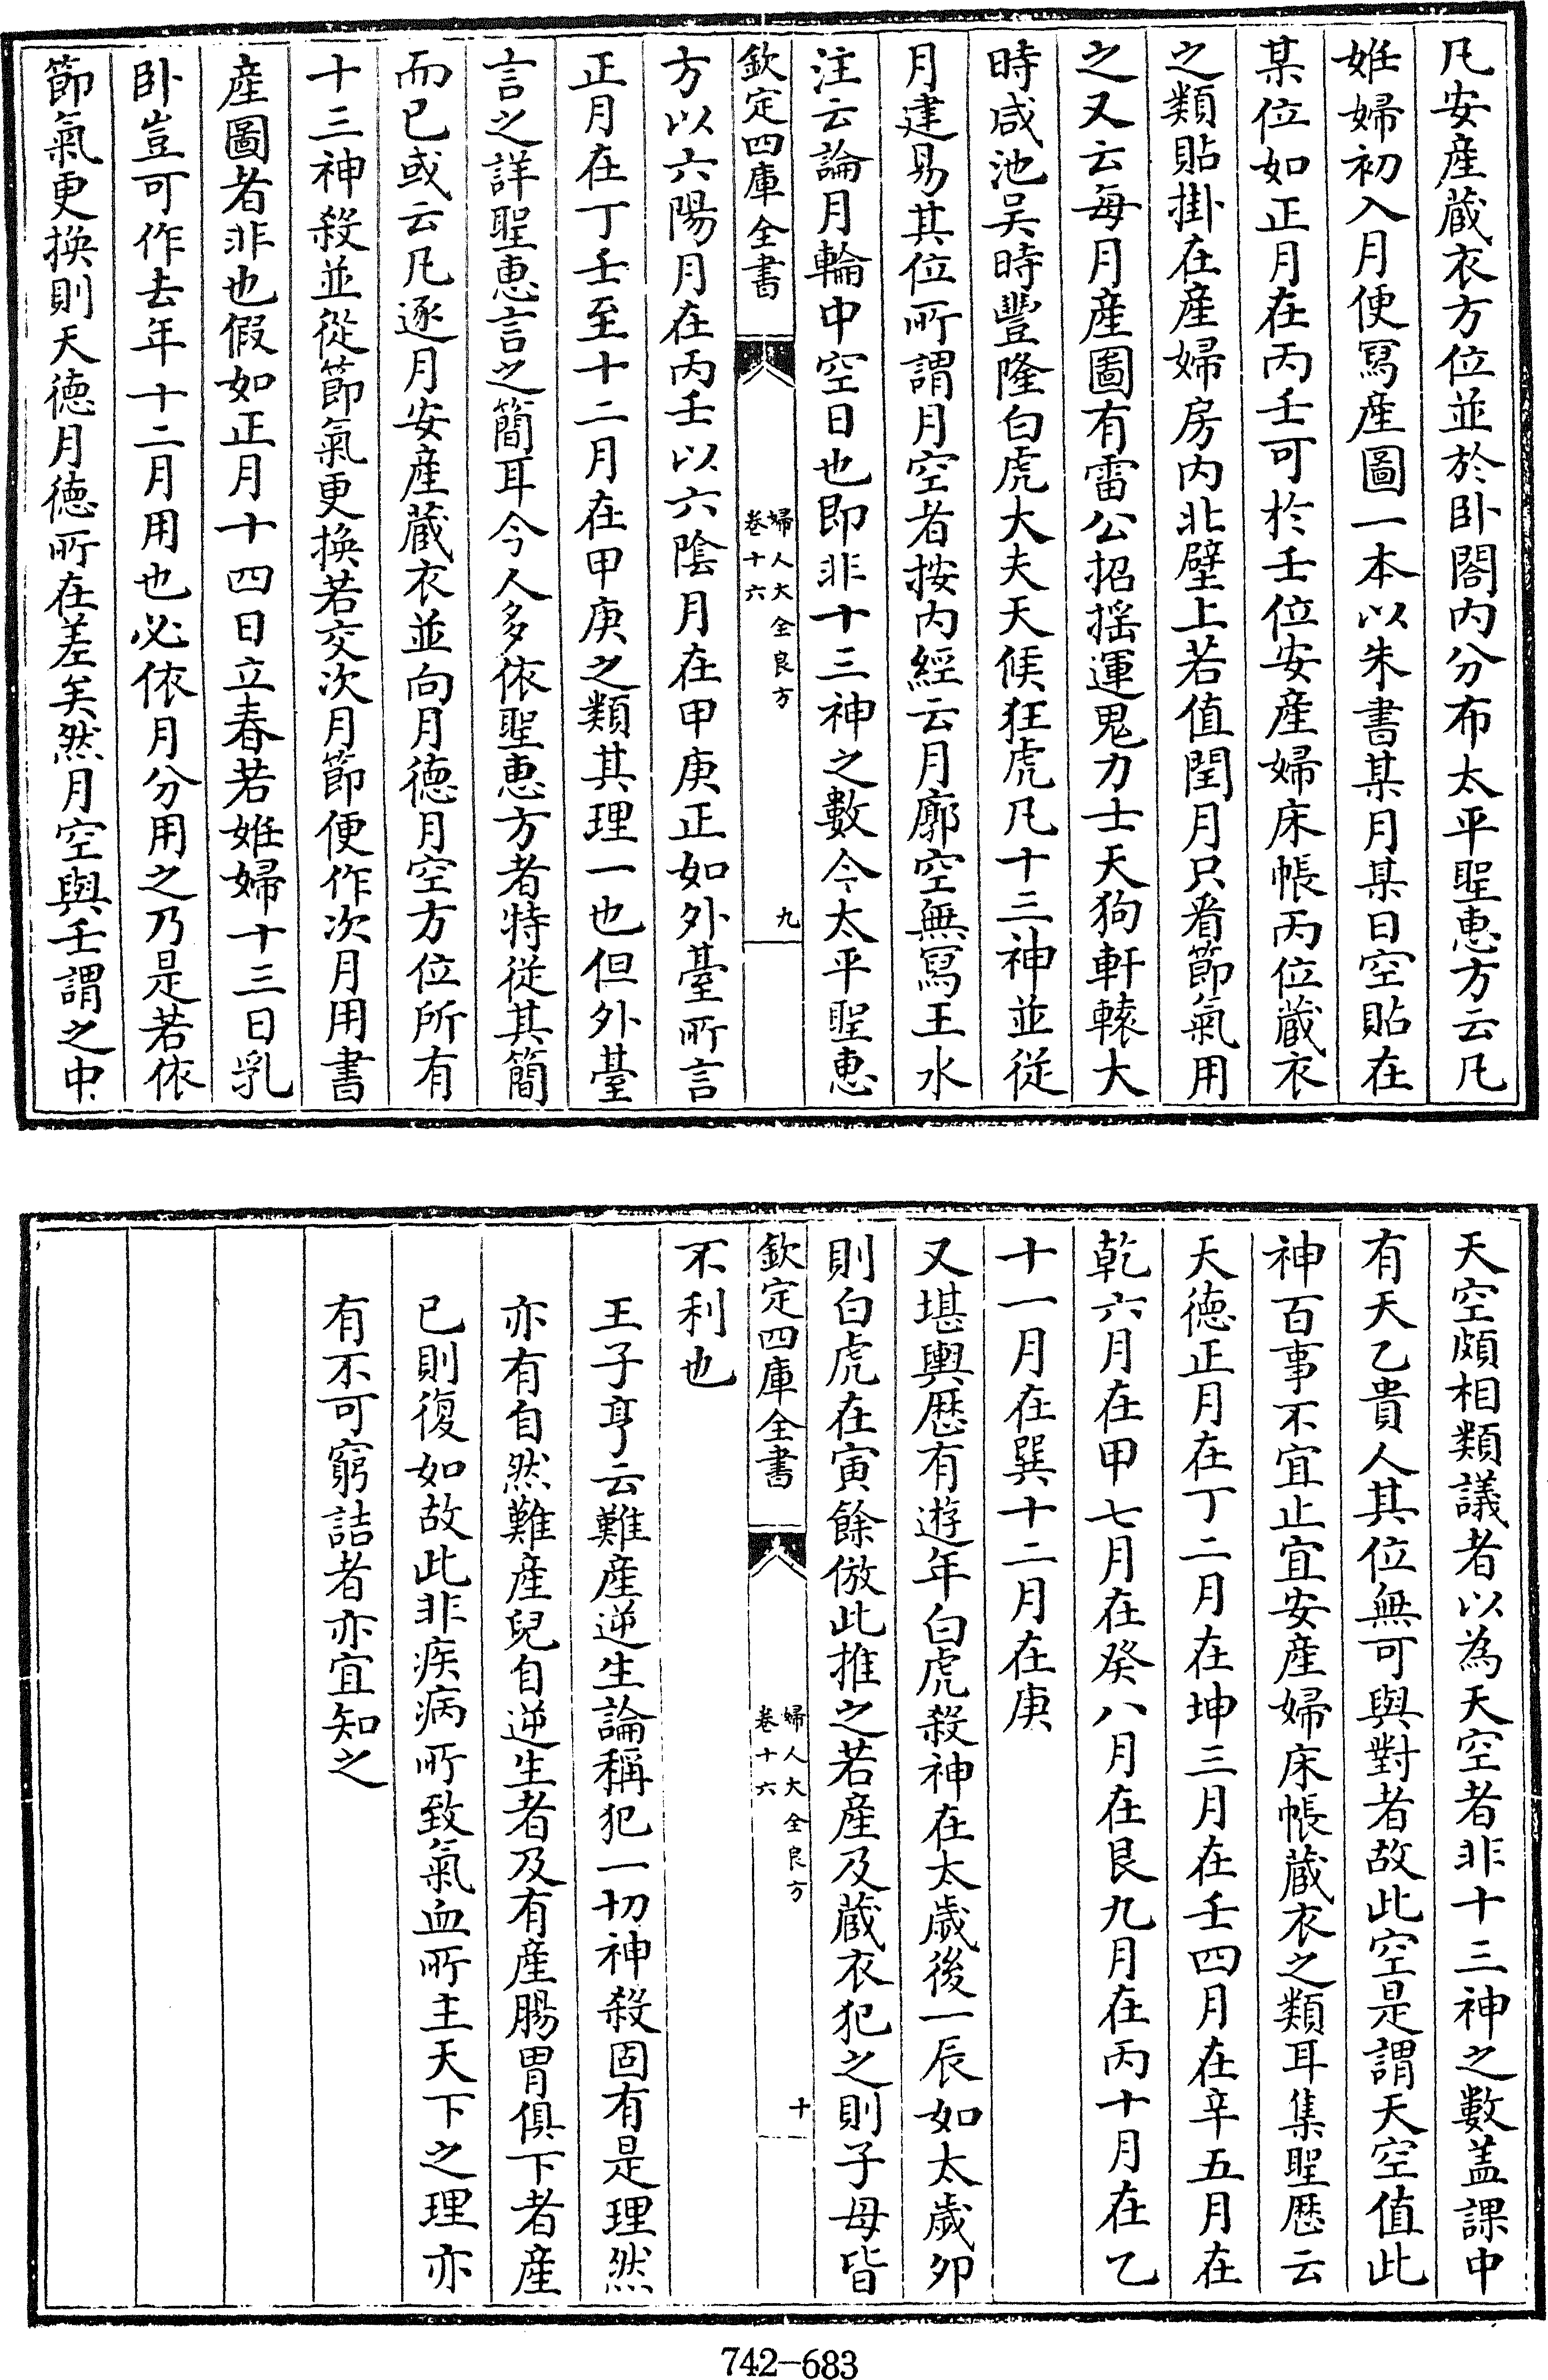 凡安産蔵衣方位並於卧閣内分布太平聖惠方云凡
姙婦初入月便冩産圖一本以朱書某月某日空貼在
某位如正月在丙壬可於壬位安産婦床帳丙位蔵衣
之類貼掛在産婦房内北壁上若值閏月只看節氣用
之又云每月産圖有雷公招摇運鬼力士天狗軒轅大
時咸池吴時豐隆白虎大夫天候狂虎凡十三神並従
月建易其位所謂月空者按内經云月廓空無冩王水
注云論月輪中空日也即非十三神之數今太平聖惠
欽定四庫全書
婦人大全良方
卷十六
九
方以六陽月在丙壬以六陰月在甲庚正如外臺所言
正月在丁壬至十二月在甲庚之類其理一也但外臺
言之詳聖惠言之簡耳今人多依聖惠方者特従其簡
而已或云凡逐月安産蔵衣並向月德月空方位所有
十三神殺並從節氣更换若交次月節便作次月用書
産圖者非也假如正月十四日立春若姙婦十三日乳
卧豈可作去年十二月用也必依月分用之乃是若依
節氣更换則天德月德所在差矣然月空與壬謂之中
天空頗相類議者以為天空者非十三神之數盖課中
有天乙貴人其位無可與對者故此空是謂天空值此
神百事不宜止宜安産婦床帳蔵衣之類耳集聖歴云
天德正月在丁二月在坤三月在壬四月在辛五月在
乾六月在甲七月在癸八月在艮九月在丙十月在乙
十一月在巽十二月在庚
又堪輿歴有遊年白虎殺神在太歲後一辰如太歲卯
則白虎在寅餘倣此推之若産及蔵衣犯之則子母皆
欽定四庫全書
婦人大全良方
卷十六
十
不利也
王子亨云難産逆生論稱犯一切神殺固有是理然
亦有自然難産兒自逆生者及有産腸胃俱下者産
已則復如故此非疾病所致氣血所主天下之理亦
有不可窮詰者亦宜知之
742-683